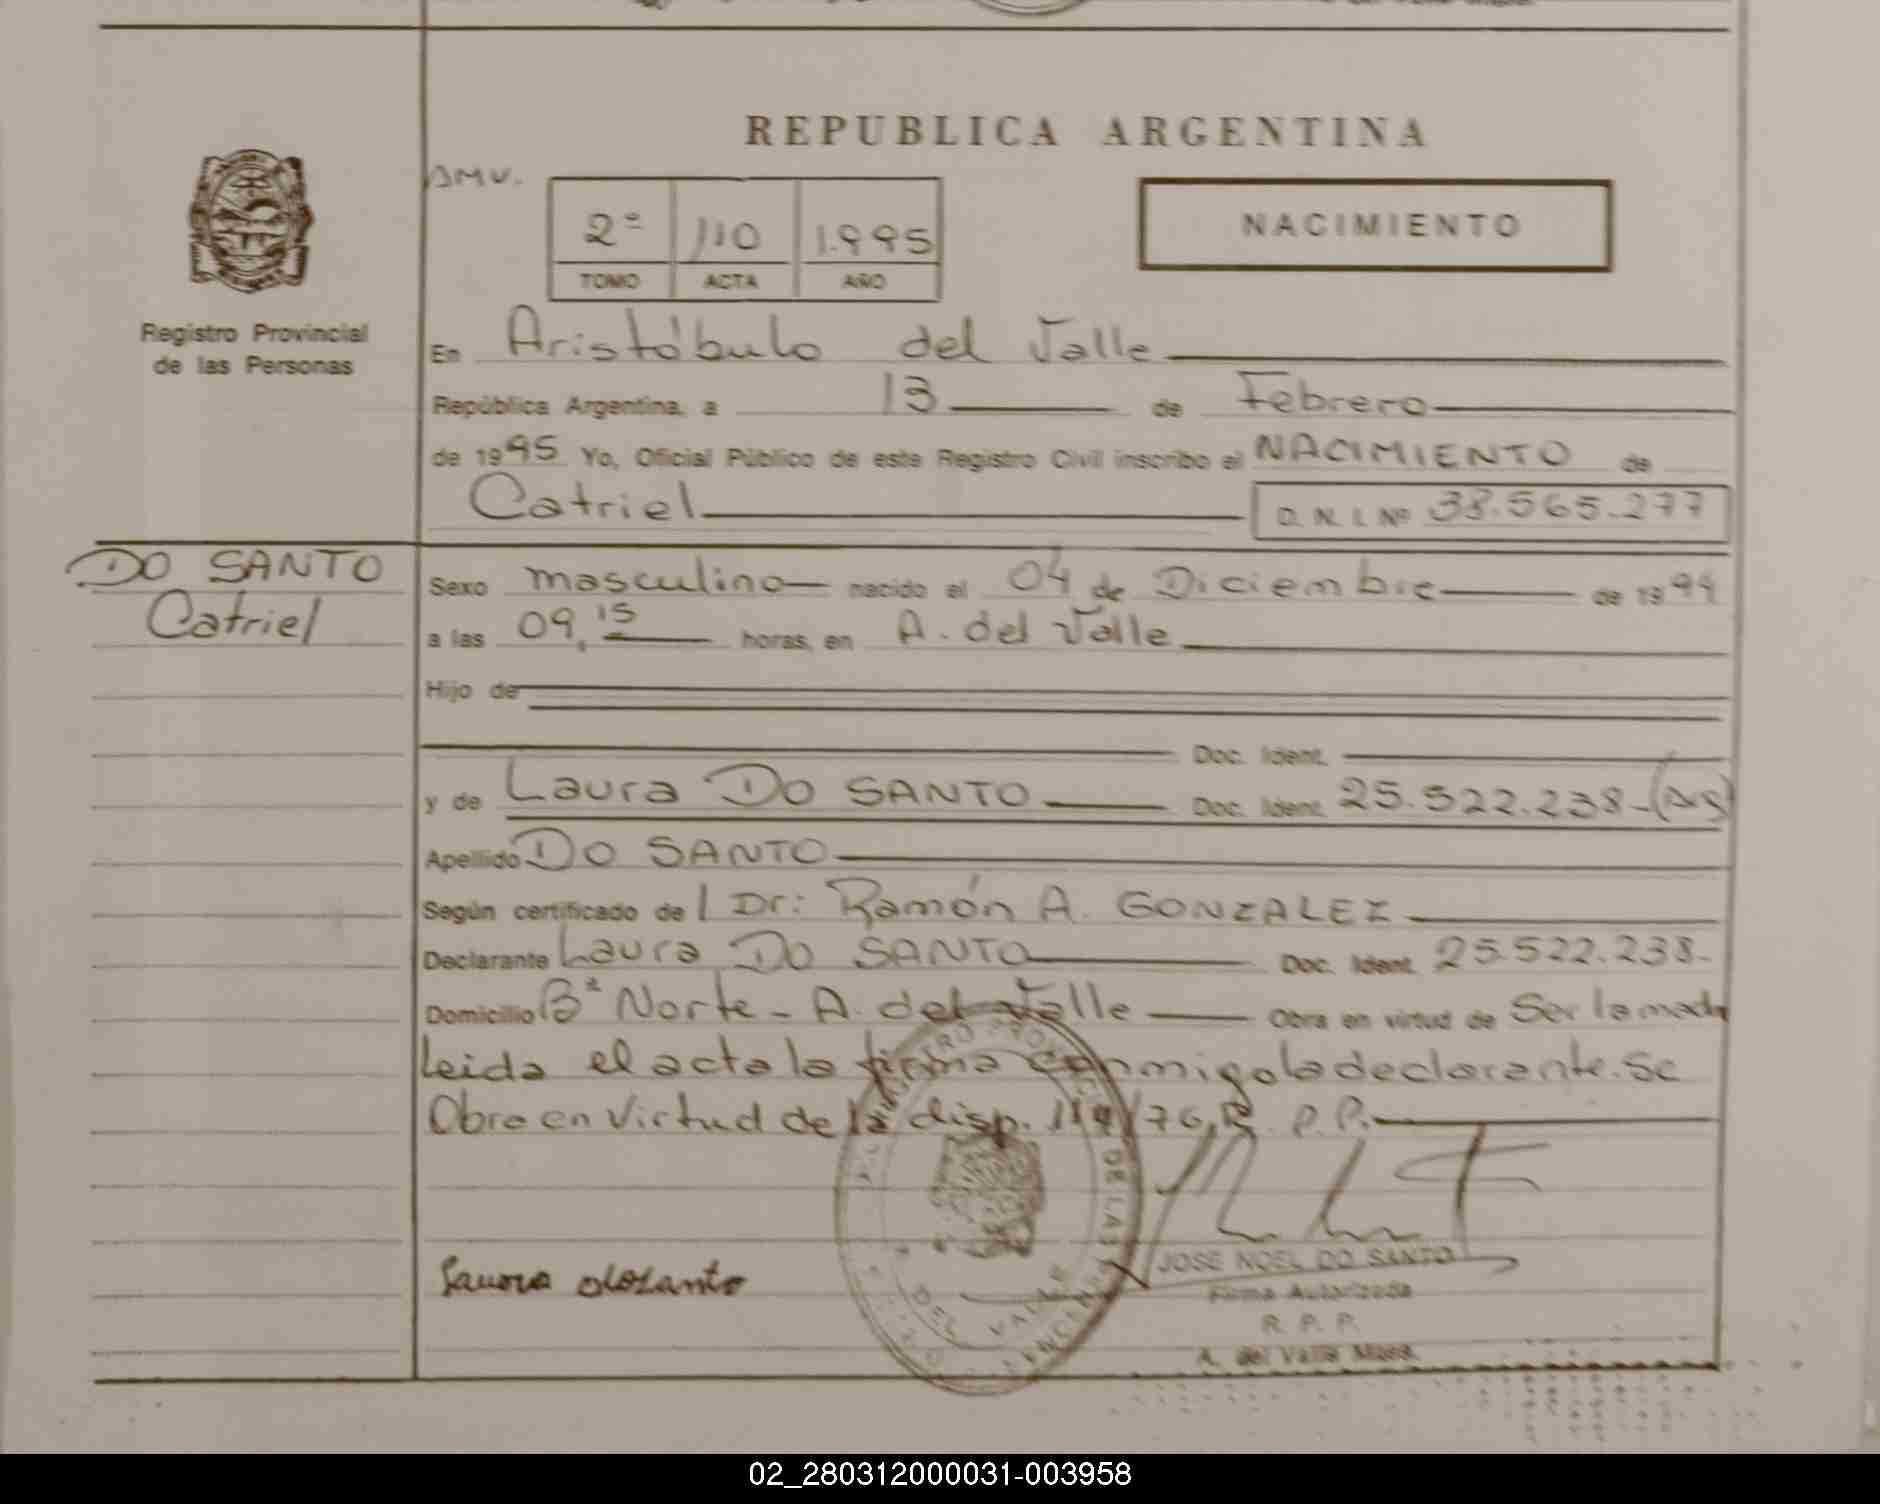 REPUBLICA ARGENTINA
2º 110 1.995
TOMO ACTA AÑO
NACIMIENTO
Registro Provincial
de las Personas
En Aristóbulo del Valle
República Argentina, a 13 de Febrero
de 1995 Yo, Oficial Público de este Registro Civil inscribo el NACIMIENTO de
Catriel D. N. I. Nº 38.565.277
DO SANTO
Catriel
Sexo masculino nacido el 04 de Diciembre de 1994
a las 09,15 horas, en A. del Valle
Hijo de
Doc. Ident.
y de Laura DO SANTO Doc. Ident. 25.522.238-
Apellido DO SANTO
Según certificado de l Dr: Ramón A. GONZALEZ
Declarante Laura DO SANTO Doc. Ident. 25.522.238-
Domicilio Bº Norte - A. del Valle Obra en virtud de Ser la madre
leida el acta la firma conmigo la declarante. Se
Obra en Virtud de la disp. 119/76, R. P.P.
Laura dosanto
JOSE NOEL DO SANTO
Firma Autorizada
R. P. P.
A. del Valle Mnes.
DE LAS
DEL VALLE
02_280312000031-003958